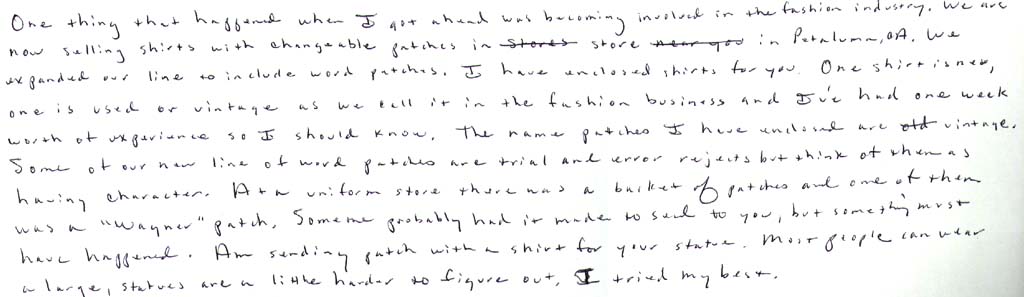 One thing that happened when I got ahead was becoming involved in the fashion industry. We are
now selling shirts with changeable patches in stores store near you in Petaluma, CA. We
expanded our line to include word patches. I have enclosed shirts for you. One shirt is new,
one is used or vintage as we call it in the fashion business and I've had one week
worth of experience so I should know. The name patches I have enclosed are old vintage.
Some of our new line of word patches are trial and error rejects but think of them as
having character. At a uniform store there was a basket of patches and one of them
was a "Wagner" patch. Someone probably had it made to send to you, but something must
have happened. Am sending patch with a shirt for your statue. Most people can wear
a large, statues are a little harder to figure out, I tried my best.